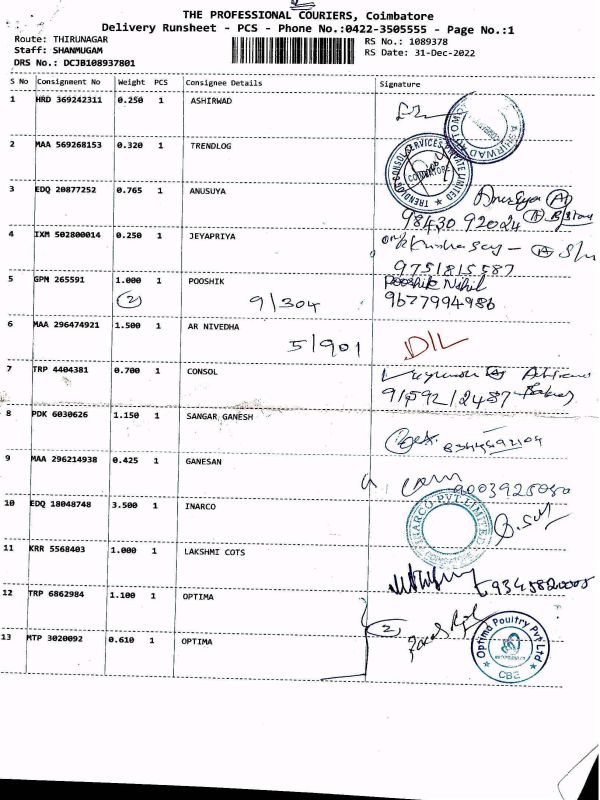 THE PROFESSIONAL COURIERS, Coimbatore
Delivery Runsheet - PCS - Phone No.:0422-3505555 - Page No.:1
Route: THIRUNAGAR
RS No.: 1089378
Staff: SHANMUGAM
RS Date: 31-Dec-2022
DRS No.: DCJB108937801
S No Consignment No Weight PCS Consignee Details Signature
1 HRD 369242311 0.250 1 ASHIRWAD
ASHIRWAD
2 MAA 569268153 0.320 1 TRENDLOG
TRENDLOG CONSOL SERVICES PRIVATE LIMITED
3 EDQ 20877252 0.765 1 ANUSUYA
98430 92024
4 IXM 502800014 0.250 1 JEYAPRIYA
9751815587
5 GPM 265591 1.000 1 POOSHIK Pooshik Nihil
(2) 9/304 9677994986
6 MAA 296474921 1.500 1 AR NIVEDHA
5/901 D/L
7 TRP 4404381 0.700 1 CONSOL
8 PDK 6030626 1.150 1 SANGAR GANESH
9 MAA 296214938 0.425 1 GANESAN
10 EDQ 18048748 3.500 1 INARCO
INARCO PVT LIMITED
11 KRR 5568403 1.000 1 LAKSHMI COTS
12 TRP 6862984 1.100 1 OPTIMA
(2)
13 MTP 3020092 0.610 1 OPTIMA
Optima Poultry Pvt Ltd
CBE